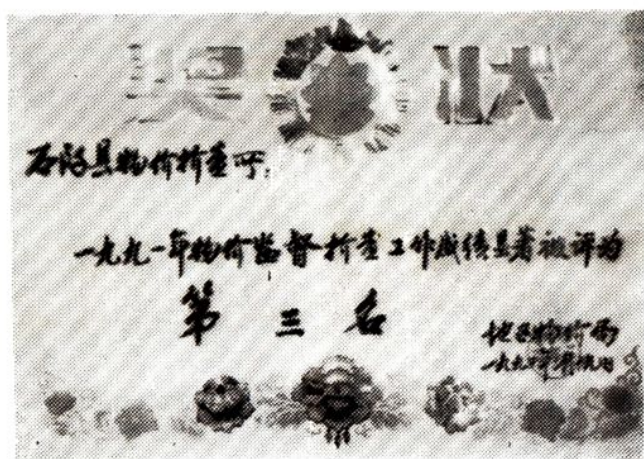 奖状
石阡县物价检查所:
一九九一年物价监督检查工作成绩显著被评为
第三名
地区物价局
一九九